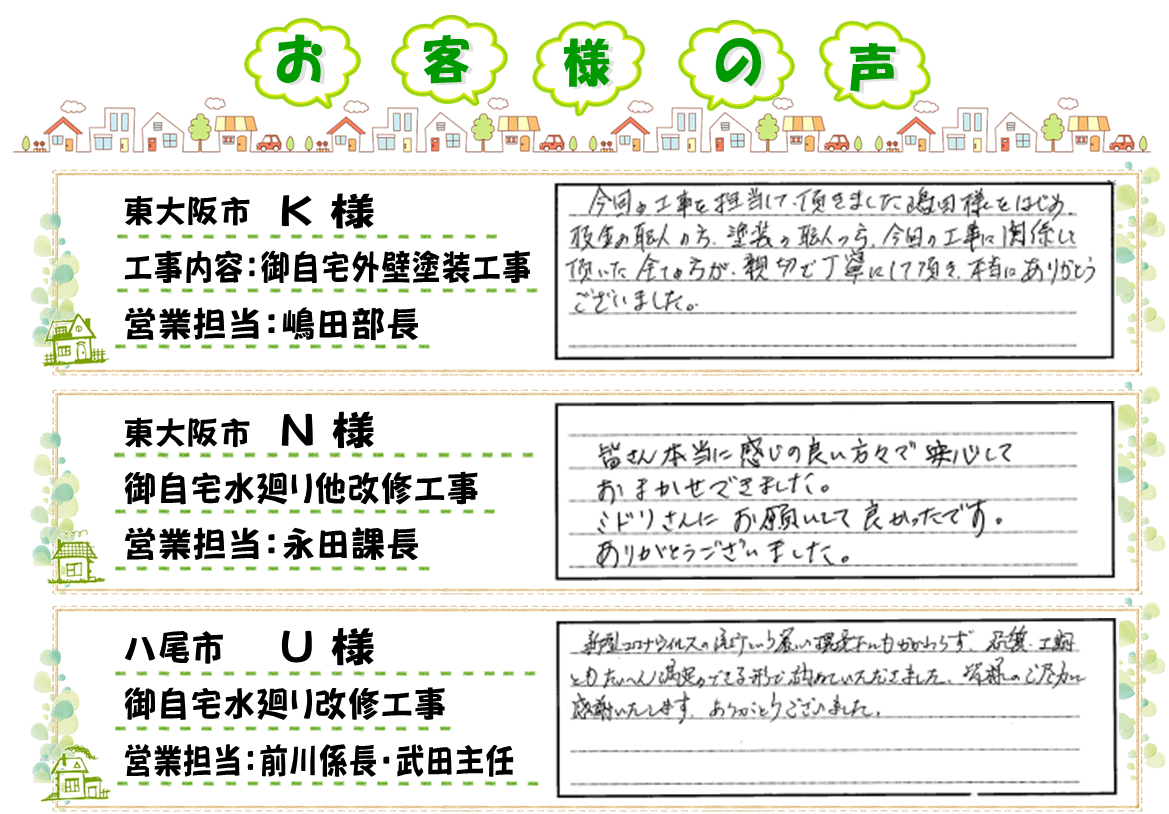 お客様の声
東大阪市 K 様
工事内容：御自宅外壁塗装工事
営業担当：嶋田部長
今回の工事を担当して頂きました嶋田様をはじめ、
板金の職人の方、塗装の職人の方、今回の工事に関係して
頂いた全ての方が、親切で丁寧にして頂き、本当にありがとう
ございました。
東大阪市 N 様
御自宅水廻り他改修工事
営業担当：永田課長
皆さん本当に感じの良い方々で安心して
おまかせできました。
ミドリさんにお願いして良かったです。
ありがとうございました。
八尾市 U 様
御自宅水廻り改修工事
営業担当：前川係長・武田主任
新型コロナウイルスの流行という悪い環境下にもかかわらず、品質・工期
ともたいへん満足のできる形で納めていただきました。皆様のご尽力に
感謝いたします。ありがとうございました。